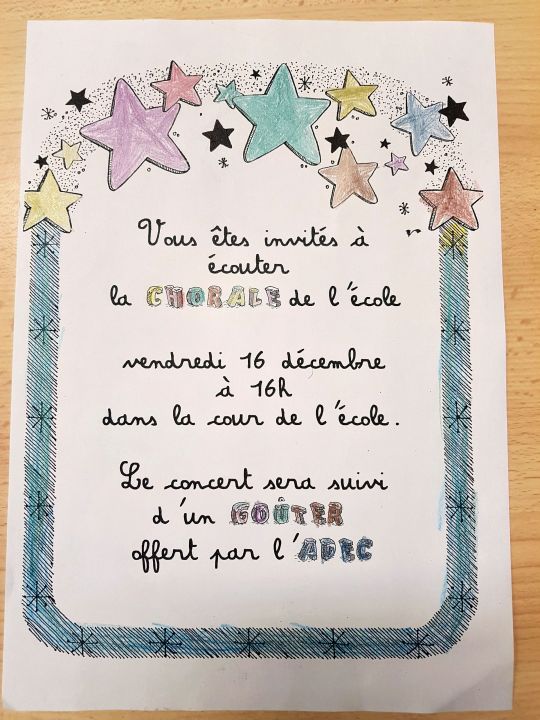 Vous êtes invités à
écouter
la CHORALE de l'école
vendredi 16 décembre
à 16h
dans la cour de l'école.
Le concert sera suivi
d'un GOÛTER
offert par l'ADEC